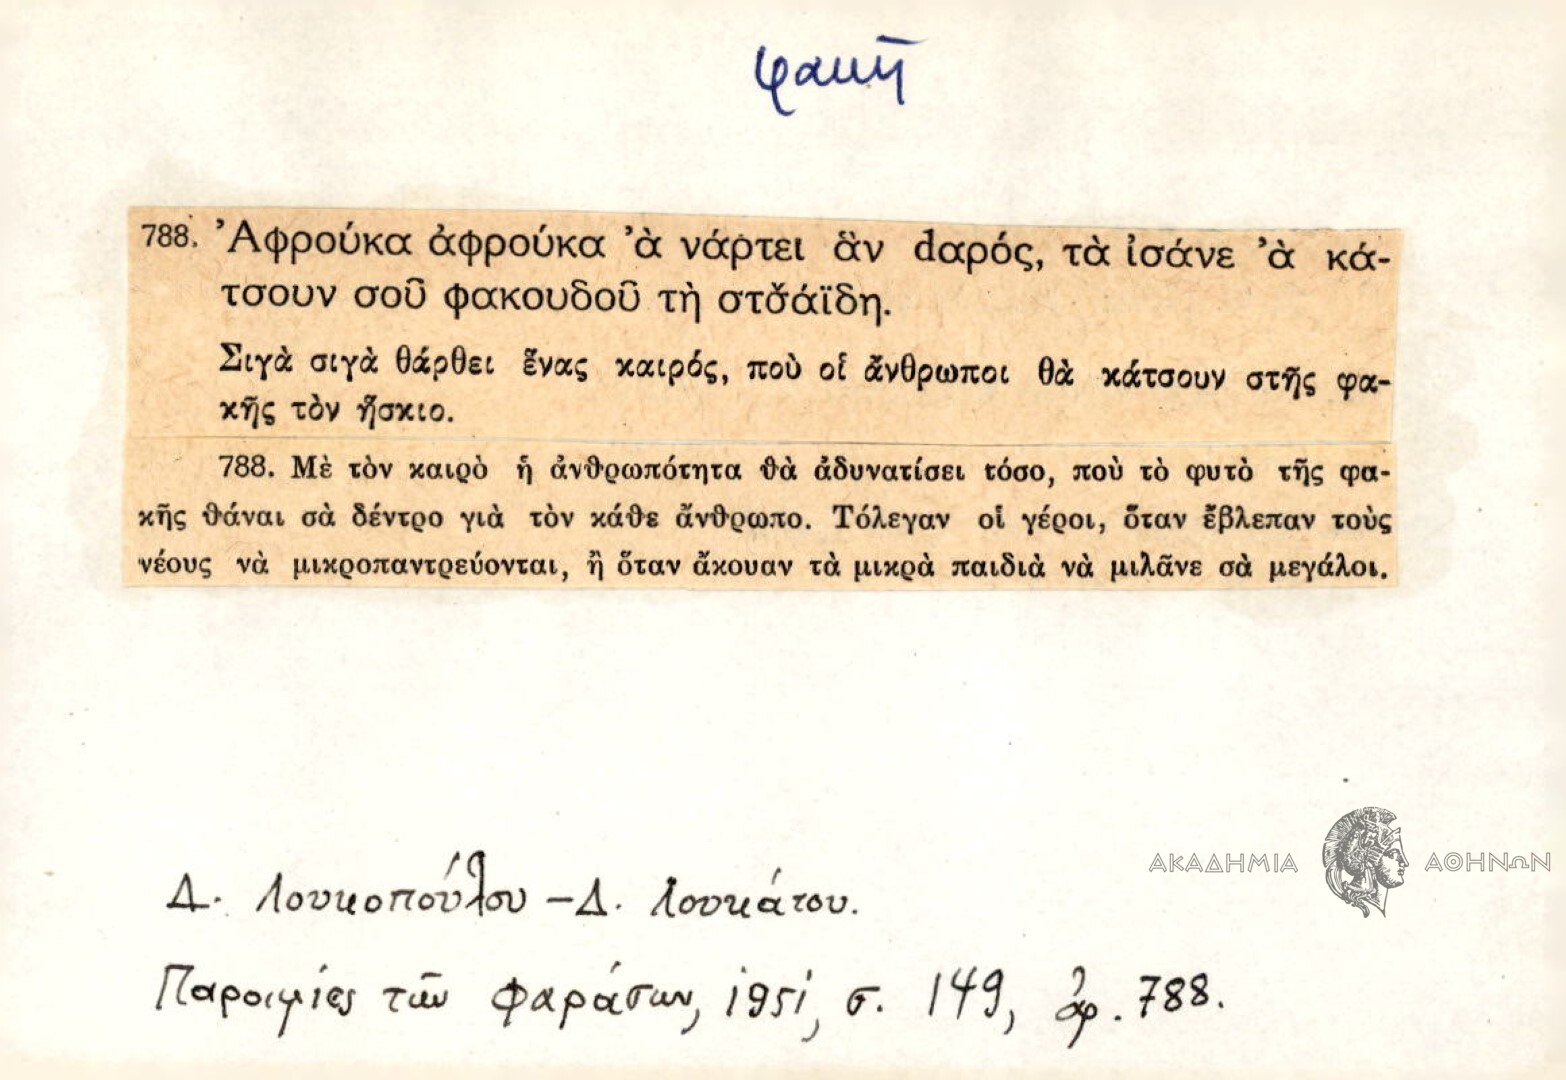 φακῆ
788. Ἀφρούκα ἀφρούκα ’ὰ νάρτει ἂν dαρός, τὰ ἰσάνε ’ὰ κά-
τσουν σοῦ φακουδοῦ τὴ στσ̌άϊδη.
Σιγὰ σιγὰ θάρθει ἕνας καιρός, ποὺ οἱ ἄνθρωποι θὰ κάτσουν στῆς φα-
κῆς τὸν ἥσκιο.
788. Μὲ τὸν καιρὸ ἡ ἀνθρωπότητα θὰ ἀδυνατίσει τόσο, ποὺ τὸ φυτὸ τῆς φα-
κῆς θάναι σὰ δέντρο γιὰ τὸν κάθε ἄνθρωπο. Τόλεγαν οἱ γέροι, ὅταν ἔβλεπαν τοὺς
νέους νὰ μικροπαντρεύονται, ἢ ὅταν ἄκουαν τὰ μικρὰ παιδιὰ νὰ μιλᾶνε σὰ μεγάλοι.
ΑΚΑΔΗΜΙΑ ΑΘΗΝΩΝ
Δ. Λουκοπούλου – Δ. Λουκάτου.
Παροιμίες τῶν Φαράσων, 1951, σ. 149, ἀρ. 788.